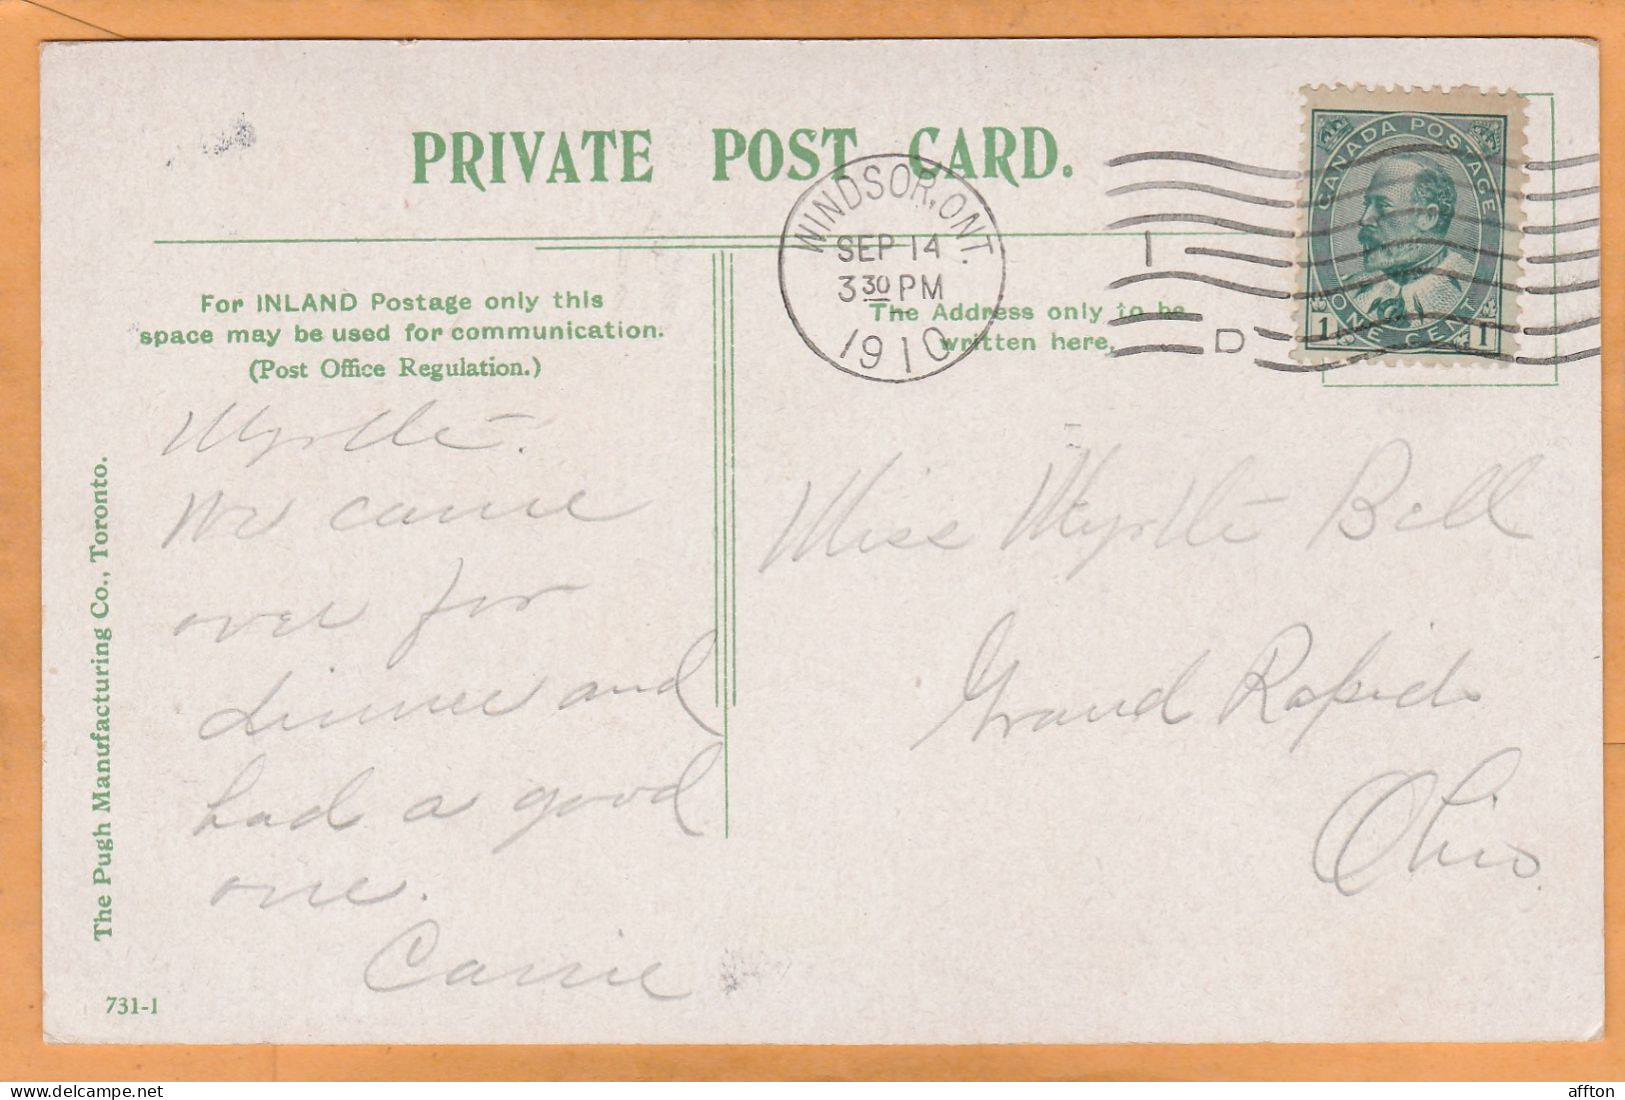 PRIVATE POST CARD.
WINDSOR, ONT.
SEP 14
3 30 PM
1910
I
D
CANADA POSTAGE
1 ONE CENT 1
For INLAND Postage only this
space may be used for communication.
(Post Office Regulation.)
The Address only to be
written here.
Myrtle-
We came
over for
dinner and
had a good
one.
Carrie
Miss Myrtle Bell
Grand Rapids
Ohio.
The Pugh Manufacturing Co., Toronto.
731-1
affton